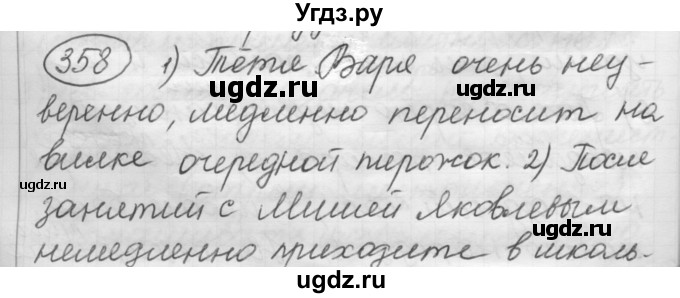 Угдз.ру
358 1) Тётя Варя очень неу-
веренно, медленно переносит на
вилке очередной пирожок. 2) После
занятий с Мишей Яковлевым
немедленно приходите в школь-
ugdz.ru
ugdz.ru
ugdz.ru
ugdz.ru
ugdz.ru
ugdz.ru
ugdz.ru